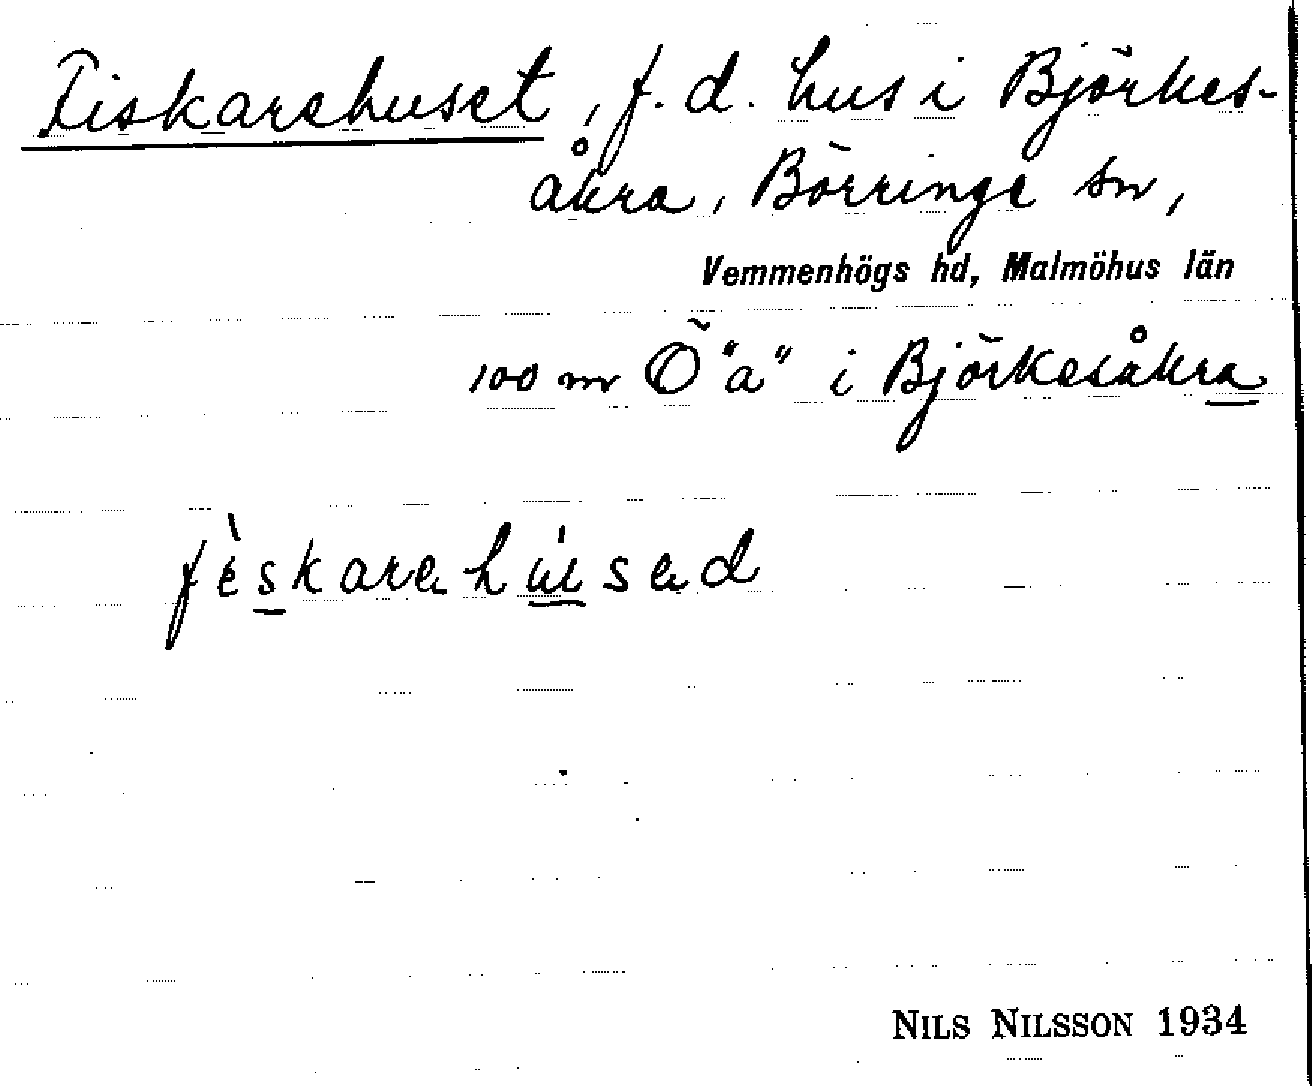 Fiskarehuset, f.d. hus i Björkes-
åkra, Börringe sn,
Vemmenhögs hd, Malmöhus län
100 m Ö "a" i Björkesåkra
fèskarehúsed
NILS NILSSON 1934